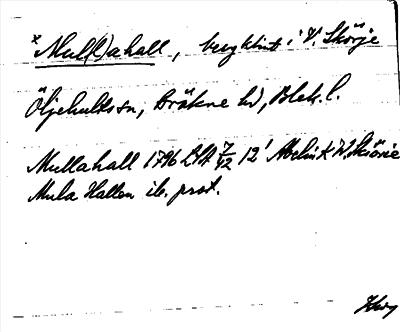 *Mul(l)ahall, bergklint i V. Skörje
Öljehults sn, Bräkne hd, Blek. l.
Mullahall 1796 LSA 7/42 12' Abelin k W. Skiörie
Mula Hallen ib. prot.